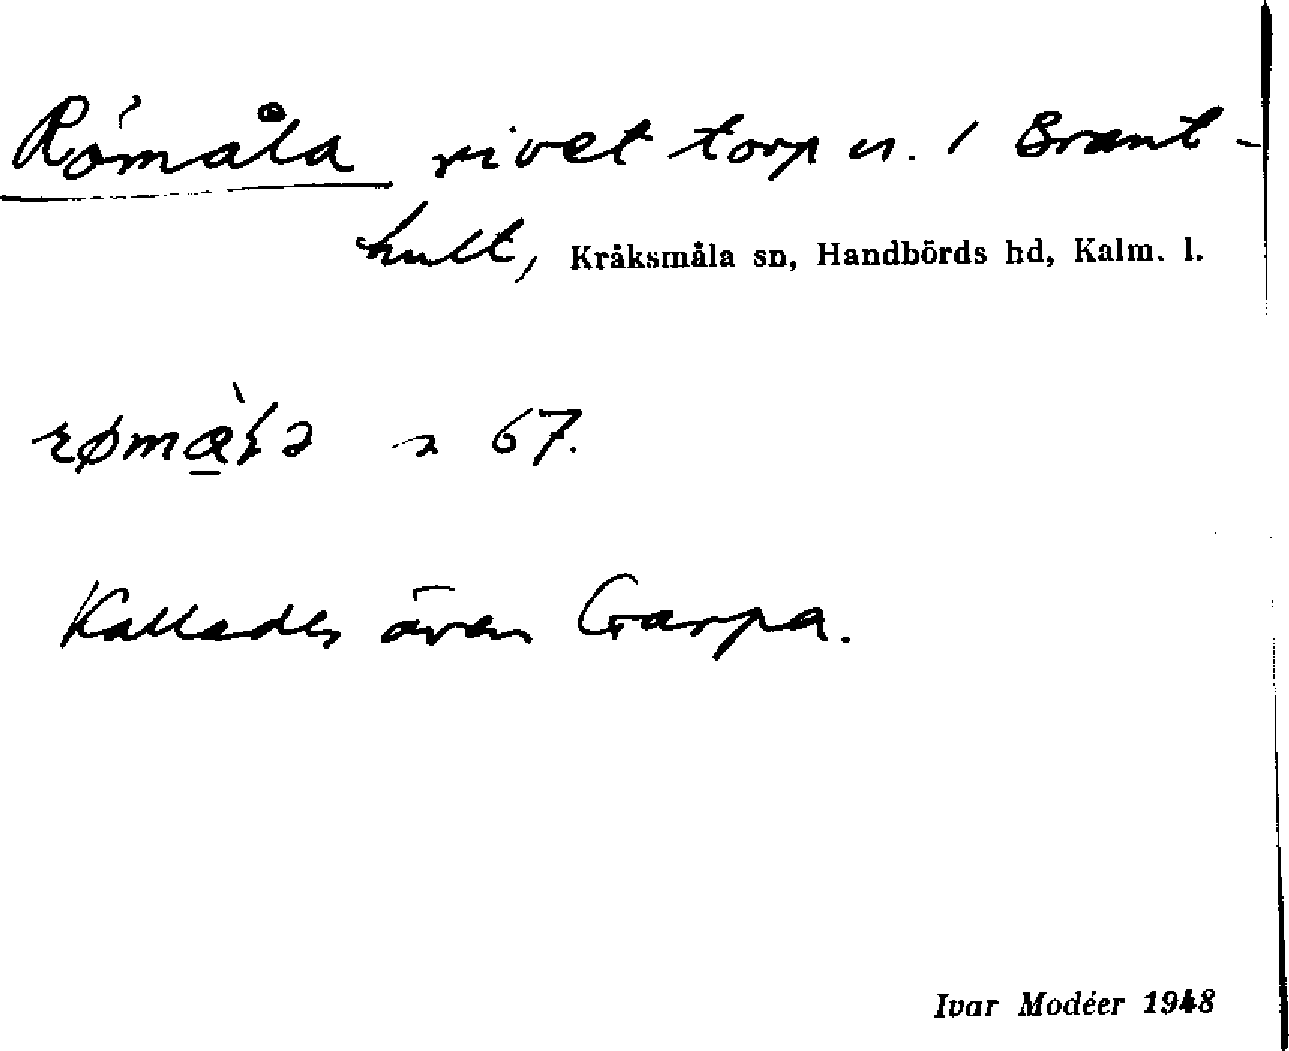 Römåla rivet torp u. / Brant-
hult, Kråksmåla sn, Handbörds hd, Kalm. l.
67.
Kallades även Garpa.
Ivar Modéer 1948